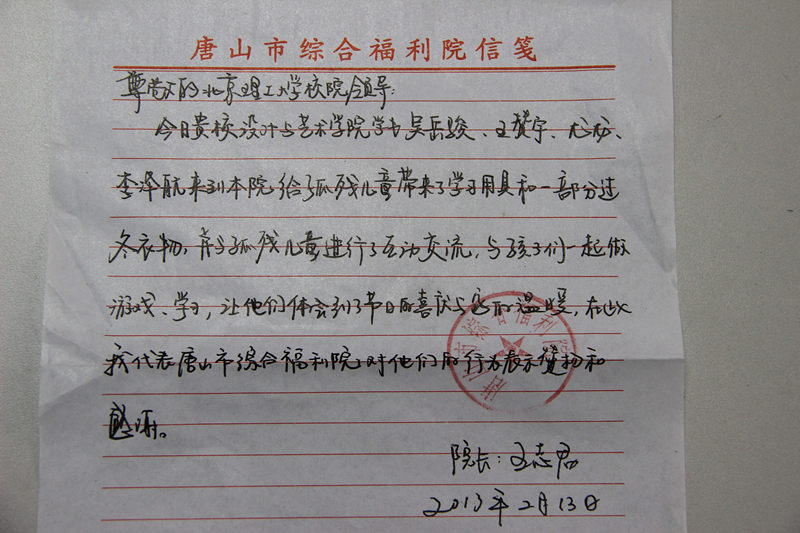 唐山市综合福利院信笺
尊敬的北京理工大学校院领导：
今日贵校设计与艺术学院学生吴岳骏、王赞宇、尤龙、
李泽航来到本院给孤残儿童带来了学习用具和一部分过
冬衣物，并与孤残儿童进行了互动交流，与孩子们一起做
游戏、学习，让他们体会到了节日的喜庆与家的温暖，在此
我代表唐山市综合福利院对他们的行为表示赞扬和
感谢。
院长：王志君
2013年2月13日
唐山市综合福利院